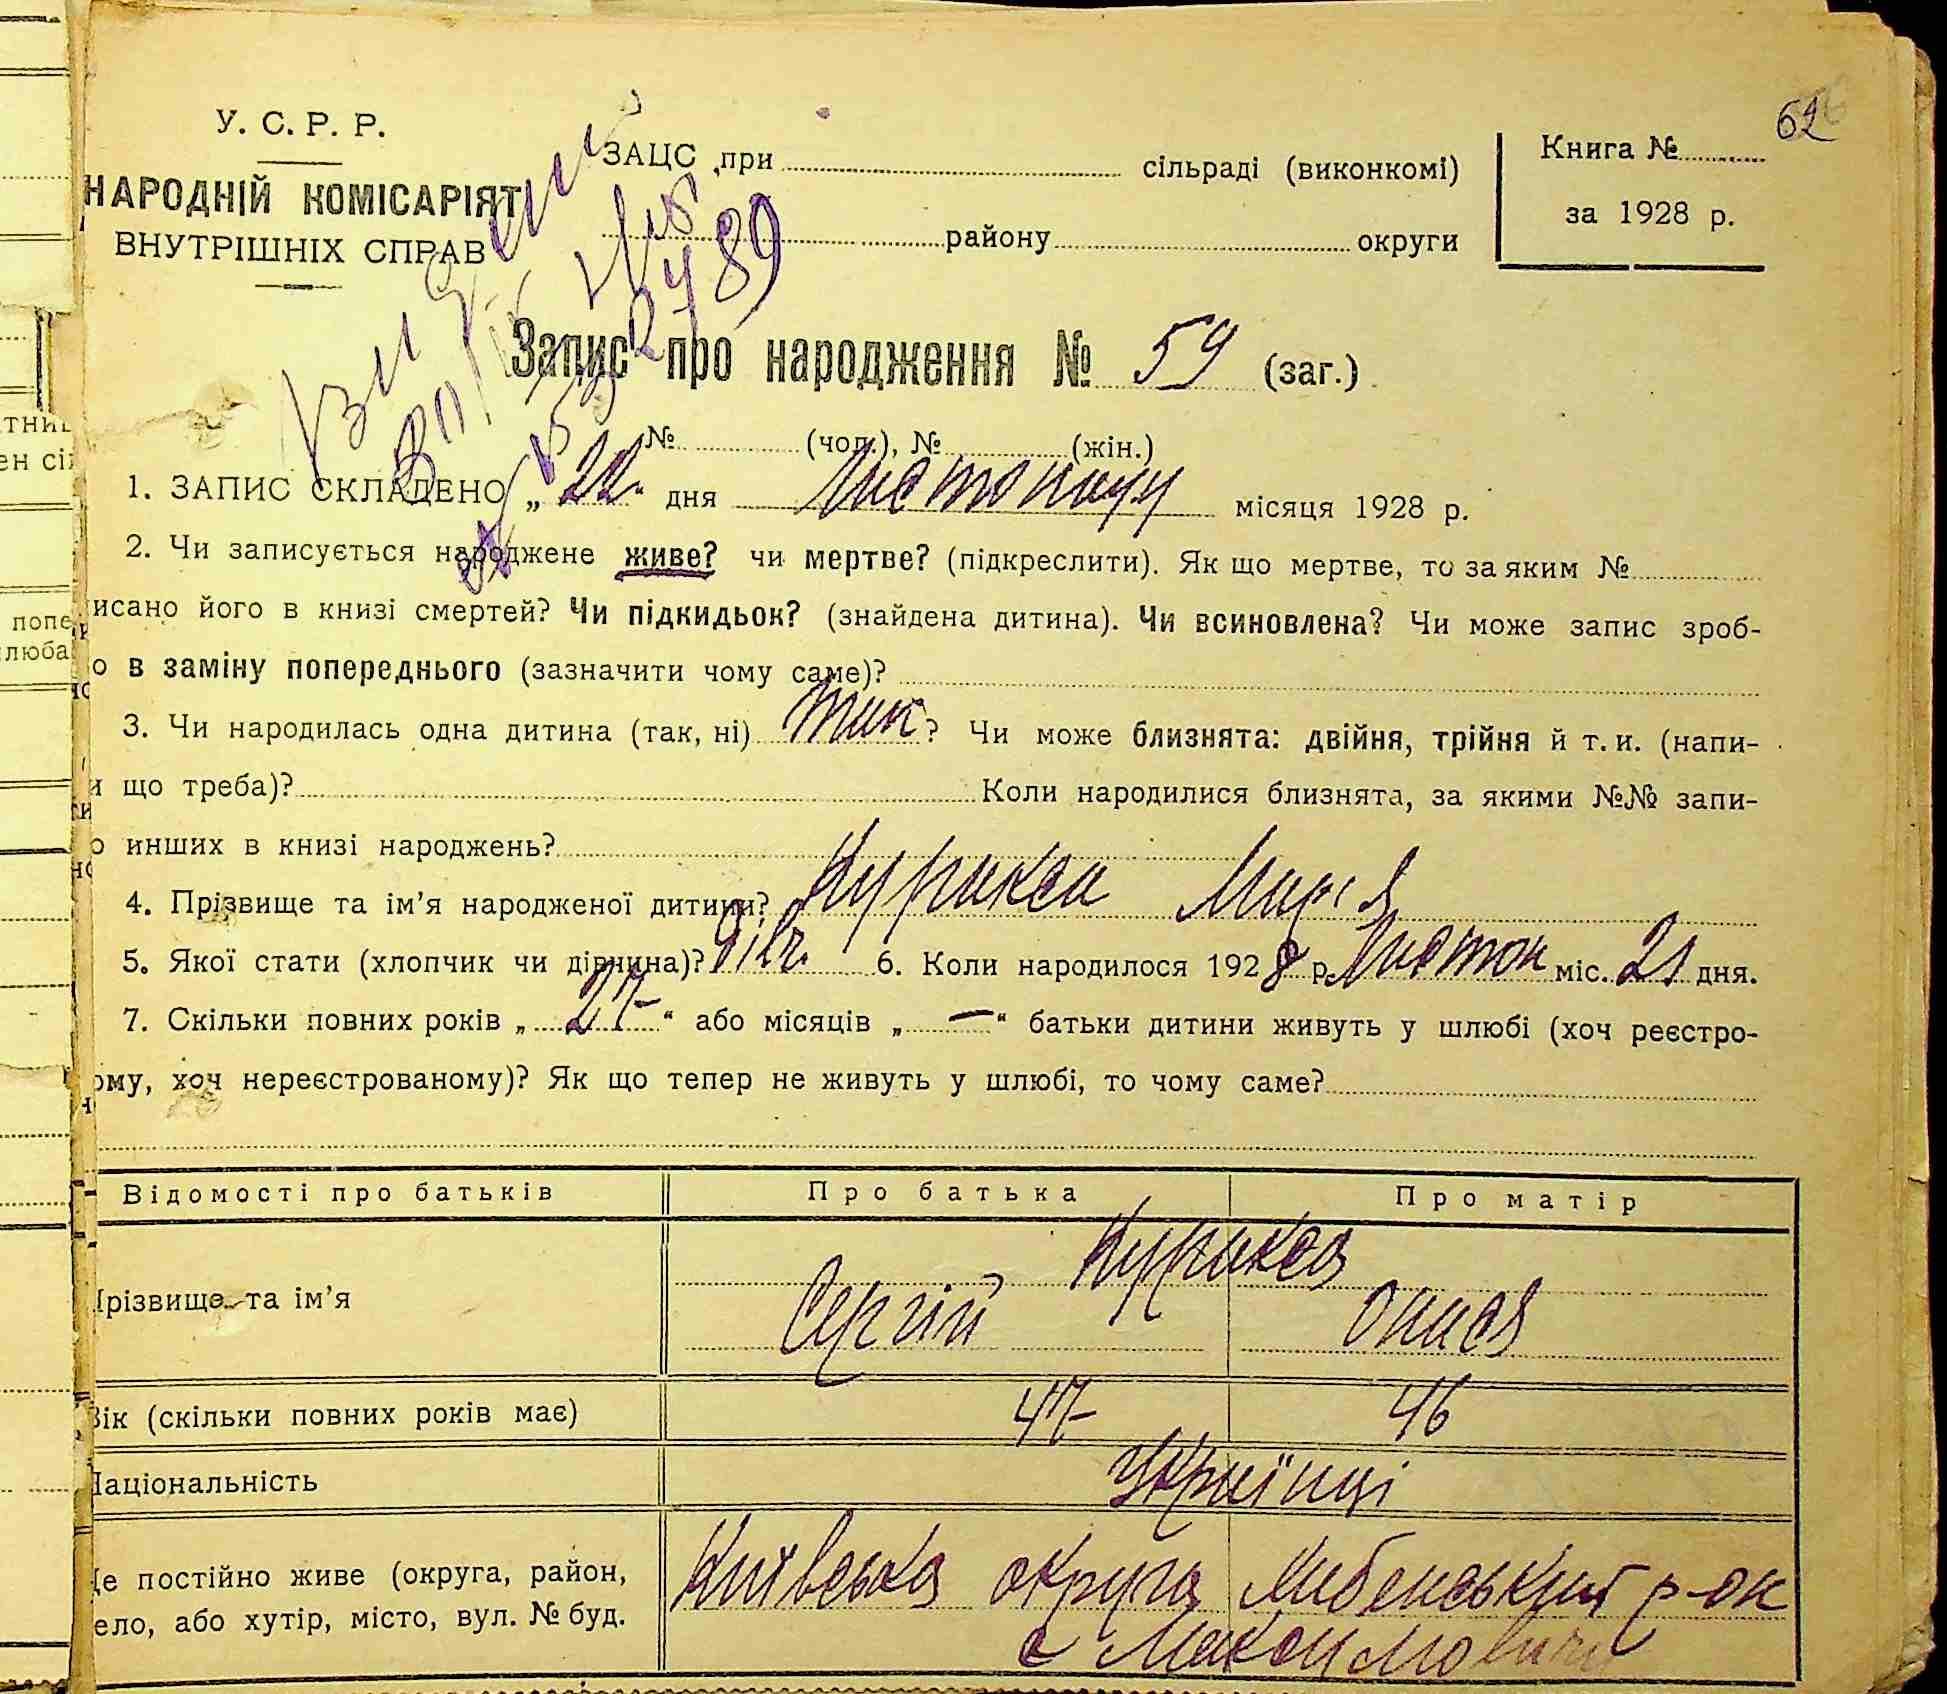 62
У. С. Р. Р.
НАРОДНІЙ КОМІСАРІЯТ
ВНУТРІШНІХ СПРАВ
ЗАЦС при сільраді (виконкомі)
району округи
Книга №
за 1928 р.
2489
Запис про народження № 59 (заг.)
№ (чол.), № (жін.)
1. ЗАПИС СКЛАДЕНО „22“ дня Листопаду місяця 1928 р.
2. Чи записується народжене живе? чи мертве? (підкреслити). Як що мертве, то за яким №
исано його в книзі смертей? Чи підкидьок? (знайдена дитина). Чи всиновлена? Чи може запис зроб-
о в заміну попереднього (зазначити чому саме)?
3. Чи народилась одна дитина (так, ні) так? Чи може близнята: двійня, трійня й т. и. (напи-
и що треба)? Коли народилися близнята, за якими №№ запи-
о инших в книзі народжень?
4. Прізвище та ім'я народженої дитини? Курикса Марія
5. Якої стати (хлопчик чи дівчина)? дівч. 6. Коли народилося 1928 р. Листоп міс. 21 дня.
7. Скільки повних років „27“ або місяців „—“ батьки дитини живуть у шлюбі (хоч реєстро-
ому, хоч нереєстрованому)? Як що тепер не живуть у шлюбі, то чому саме?
Відомості про батьків Про батька Про матір
Прізвище та ім'я Курикса
Сергій Онися
Вік (скільки повних років має) 47 46
Національність Українці
Де постійно живе (округа, район, Київська округа р-он
село, або хутір, місто, вул. № буд. с Максимовичі